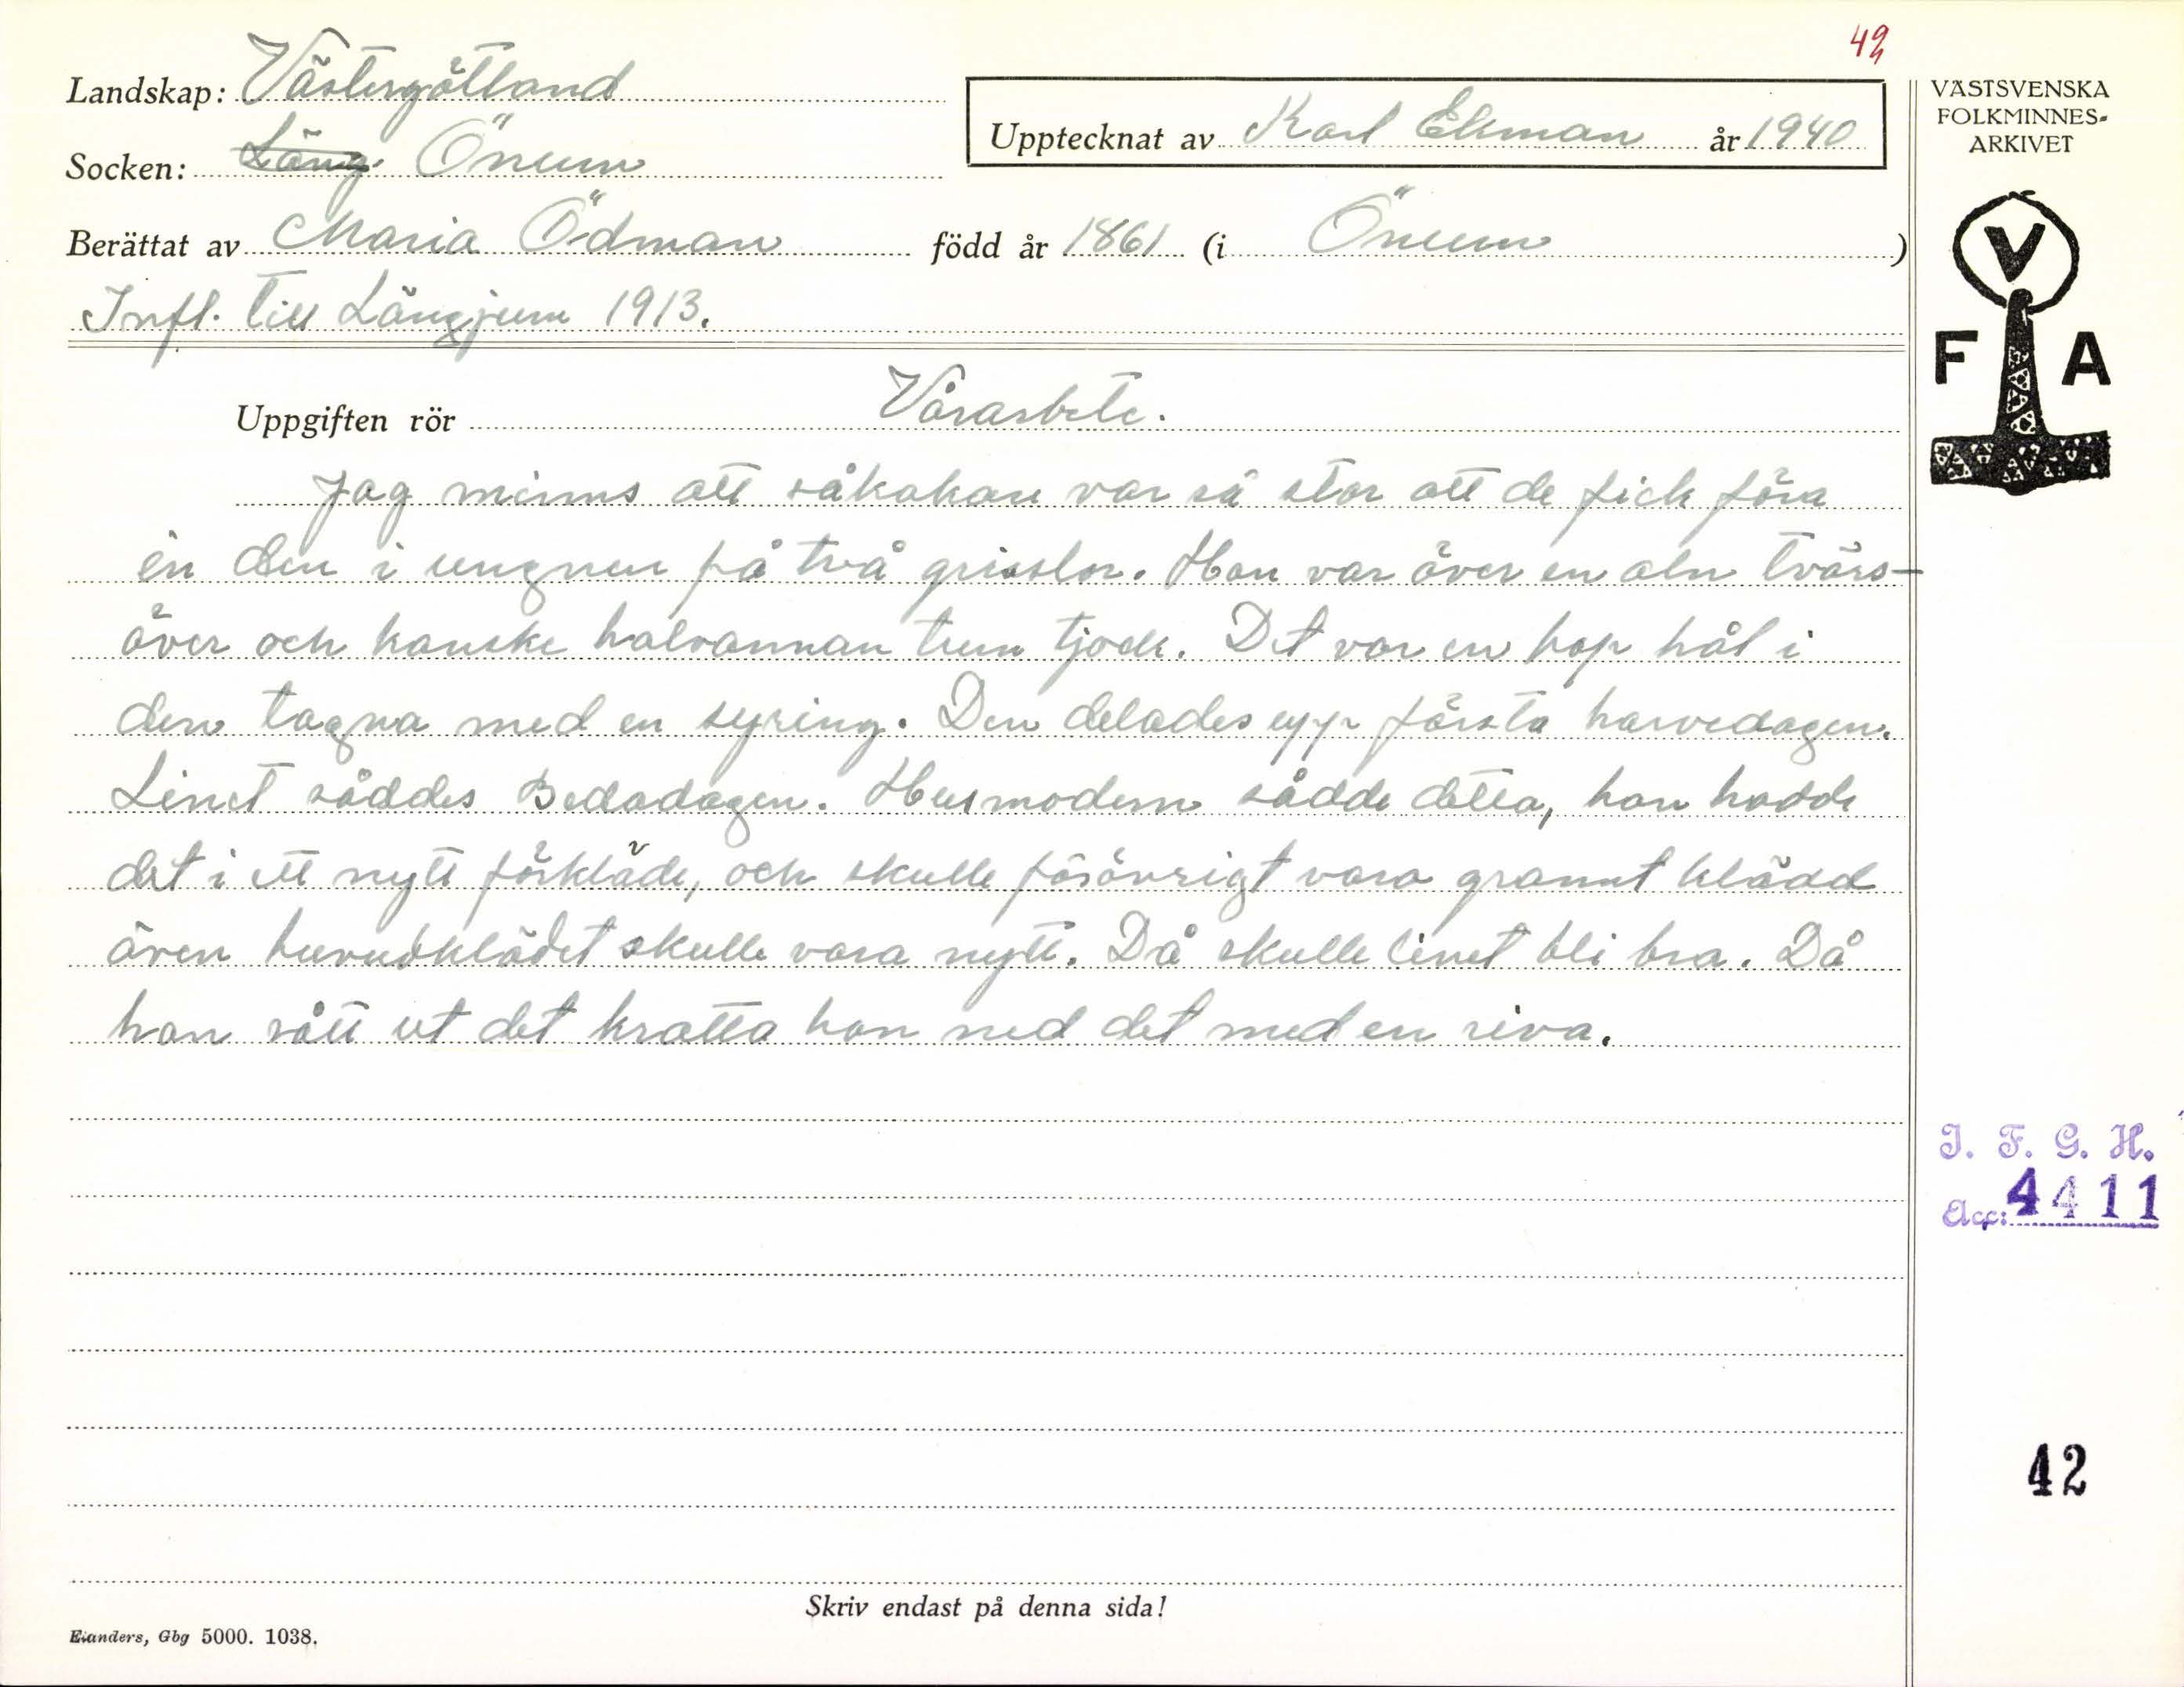 42
Landskap: Västergötland
Socken: Läng. Önum
Upptecknat av Karl Ekman år 1940
VÄSTSVENSKA
FOLKMINNES-
ARKIVET
Berättat av Maria Ödman född år 1861 (i Önum)
Infl. till Längjum 1913.
V
F A
Uppgiften rör Vårarbete.
Jag minns att såkakan var så stor att de fick föra
in den i ungnen på två grisslor. Hon var över en aln tvärs-
över och kanske halvannan tum tjock. Det var en hop hål i
den tagna med en syring. Den delades upp första harvedagen.
Linet såddes Bedadagen. Husmodern sådde detta, hon hadde
det i ett nytt förkläde, och skulle förövrigt vara grannt klädd
även huvudklädet skulle vara nytt. Då skulle linet bli bra. Då
hon sått ut det kratta hon ned det med en riva.
I. F. G. H.
Acc: 4411
42
Skriv endast på denna sida!
Elanders, Gbg 5000. 1038.